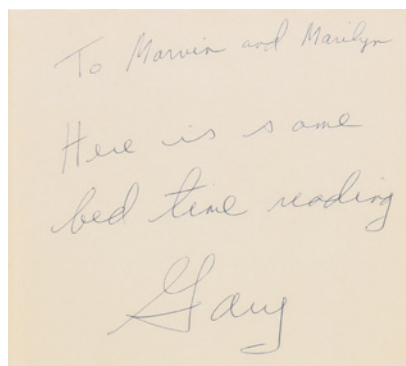 To Marvin and Marilyn
Here is some
bed time reading
Gary